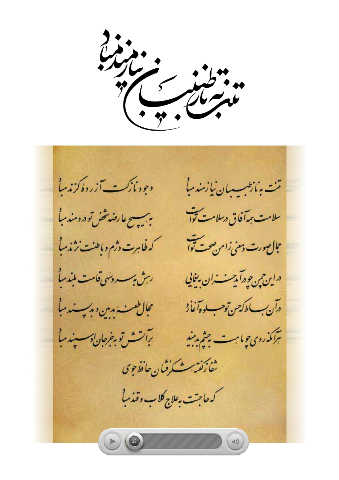 تنت به ناز طبیبان نیازمند مباد
تنت به ناز طبیبان نیازمند مباد وجود نازکت آزرده گزند مباد
سلامت همه آفاق در سلامت تست به هیچ عارضه شخص تو دردمند مباد
جمال صورت و معنی ز امن صحت تست که ظاهرت دژم و باطنت نژند مباد
در این چمن چو درآید خزان به یغمایی رهش به سرو سهی قامت بلند مباد
در آن بساط که حسن تو جلوه آغازد مجال طعنه بدبین و بدپسند مباد
هر آنکه روی چو ماهت به چشم بد بیند بر آتش تو بجز جان او سپند مباد
شفا ز گفته شکرفشان حافظ جوی
که حاجتت به علاج گلاب و قند مباد